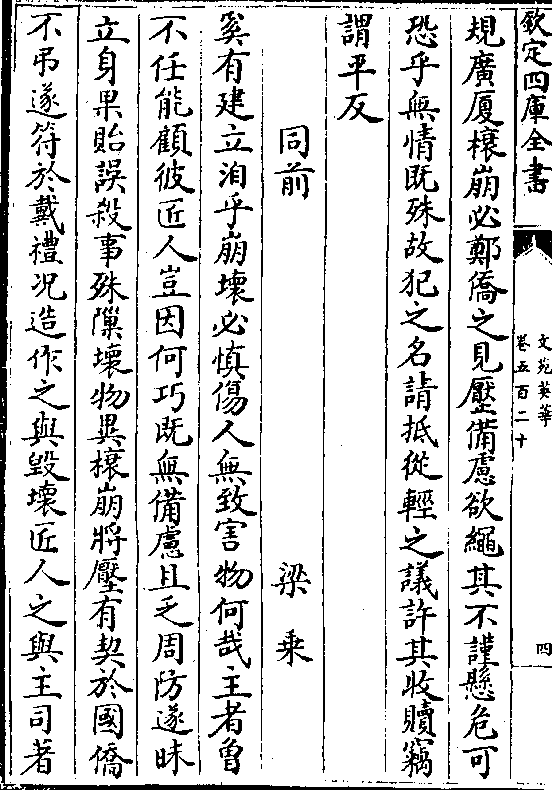 欽定四庫全書
文苑英華
卷五百二十
四
規廣厦榱崩必鄭僑之見壓備慮欲繩其不謹懸危可
恐乎無情既殊故犯之名請抵從輕之議許其收贖竊
謂平反
同前
梁乗
奚有建立洎乎崩壞必慎傷人無致害物何哉主者曾
不任能顧彼匠人豈因何巧既無備慮且乏周防遂昧
立身果貽誤殺事殊隟壞物異榱崩將壓有契於國僑
不弔遂符於戴禮况造作之與毀壞匠人之與主司著